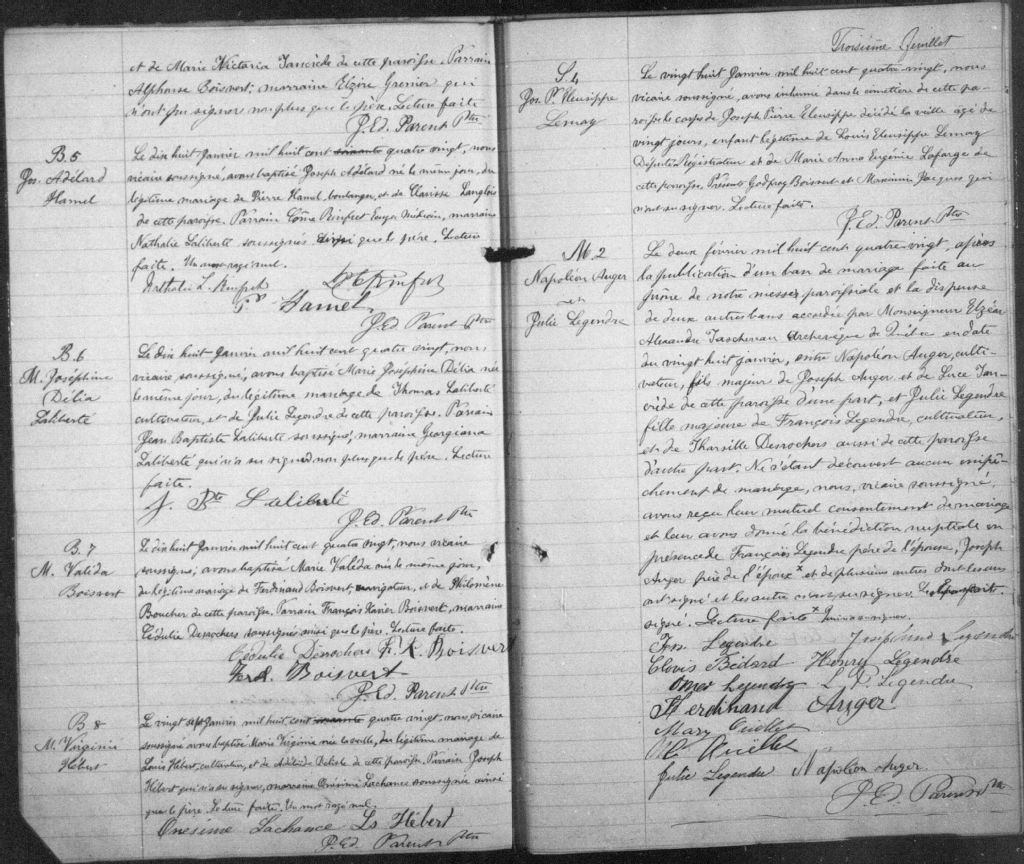 et de Marie Victoria Tancrède de cette paroisse. Parrain
Alphonse Boisvert, marraine Elzire Grenier qui
n'ont su signer non plus que le père. Lecture faite
J. Ed. Parent Ptre
B. 5
Jos. Adélard
Hamel
Le dix huit Janvier mil huit cent soixante quatre vingt, nous
vicaire soussigné, avons baptisé Joseph Adélard né le même jour, du
légitime mariage de Pierre Hamel, boulanger, et de Clarisse Langlois
de cette paroisse. Parrain Côme Rinfret marraine
Nathalie Laliberté soussignés ainsi que le père. Lecture
faite. Un mot rayé nul.
Nathalie L. Rinfret
Hamel
J. Ed. Parent Ptre
B. 6
M. Joséphine
Délia
Laliberté
Le dix huit Janvier mil huit cent quatre vingt, nous
vicaire soussigné, avons baptisé Marie Joséphine Délia née
le même jour, du légitime mariage de Thomas Laliberté
cultivateur, et de Julie Legendre de cette paroisse. Parrain
Jean Baptiste Laliberté soussigné, marraine Georgiana
Laliberté qui n'a su signer non plus que le père. Lecture
faite.
J. Bte Laliberté
J. Ed. Parent Ptre
B. 7
M. Valéda
Boisvert
Le dix huit Janvier mil huit cent quatre vingt, nous vicaire
soussigné, avons baptisé Marie Valéda née le même jour,
du légitime mariage de Ferdinand Boisvert, navigateur, et de Philomène
Boucher de cette paroisse. Parrain François Xavier Boisvert, marraine
Cédulie Desrochers soussignés ainsi que le père. Lecture faite.
Cédulie Desrochers F. X. Boisvert
Ferd. Boisvert
J. Ed. Parent Ptre
B 8
M. Virginie
Hébert
Le vingt sept Janvier mil huit cent soixante quatre vingt, nous, vicaire
soussigné avons baptisé Marie Virginie née la veille, du légitime mariage de
Louis Hébert, cultivateur, et de Adélaïde de cette paroisse. Parrain Joseph
Hébert qui n'a su signer, marraine Onésime Lachance soussignée ainsi
que le père. Lecture faite. Un mot rayé nul.
Onesime Lachance Ls Hébert
J. Ed. Parent Ptre
Troisième feuillet
S. 4
Jos. P. Eleusippe
Lemay
Le vingt huit Janvier mil huit cent quatre-vingt, nous
vicaire soussigné, avons inhumé dans le cimetière de cette pa-
roisse le corps de Joseph Pierre Eleusippe décédé la veille âgé de
vingt jours, enfant légitime de Louis Eleusippe Lemay
Député Régistrateur et de Marie Anne Eugénie Lafarge de
cette paroisse. Présents Godfroy Boisvert et Maximin Jacques qui
n'ont su signer. Lecture faite.
J. Ed. Parent Ptre
M. 2
Napoléon Auger
et
Julie Legendre
Le deux février mil huit cent quatre-vingt, après
la publication d'un ban de mariage faite au
prône de notre messe paroissiale et la dispense
de deux autres bans accordée par Monseigneur Elzéar
Alexandre Taschereau Archevêque de Québec en date
du vingt huit janvier, entre Napoléon Auger, culti-
vateur, fils majeur de Joseph Auger et de Luce Tan-
crède de cette paroisse d'une part, et Julie Legendre
fille majeure de François Legendre, cultivateur,
et de Tharsille Desrochers aussi de cette paroisse
d'autre part. Ne s'étant découvert aucun empê-
chement de mariage, nous, vicaire soussigné,
avons reçu leur mutuel consentement de mariage
et leur avons donné la bénédiction nuptiale en
présence de François Legendre père de l'épouse, Joseph
Auger père de l'époux x et de plusieurs autres dont les uns
ont signé et les autres n'ont su signer.
signé. Lecture faite x qui n'a su signer.
Frs. Legendre Joséphine Legendre
Clovis Bédard Henry Legendre
Omer Legendre L. P. Legendre
Ferdinand Auger
Mary Ouellet
Ouellet
Julie Legendre Napoléon Auger
J. Ed. Parent Ptre